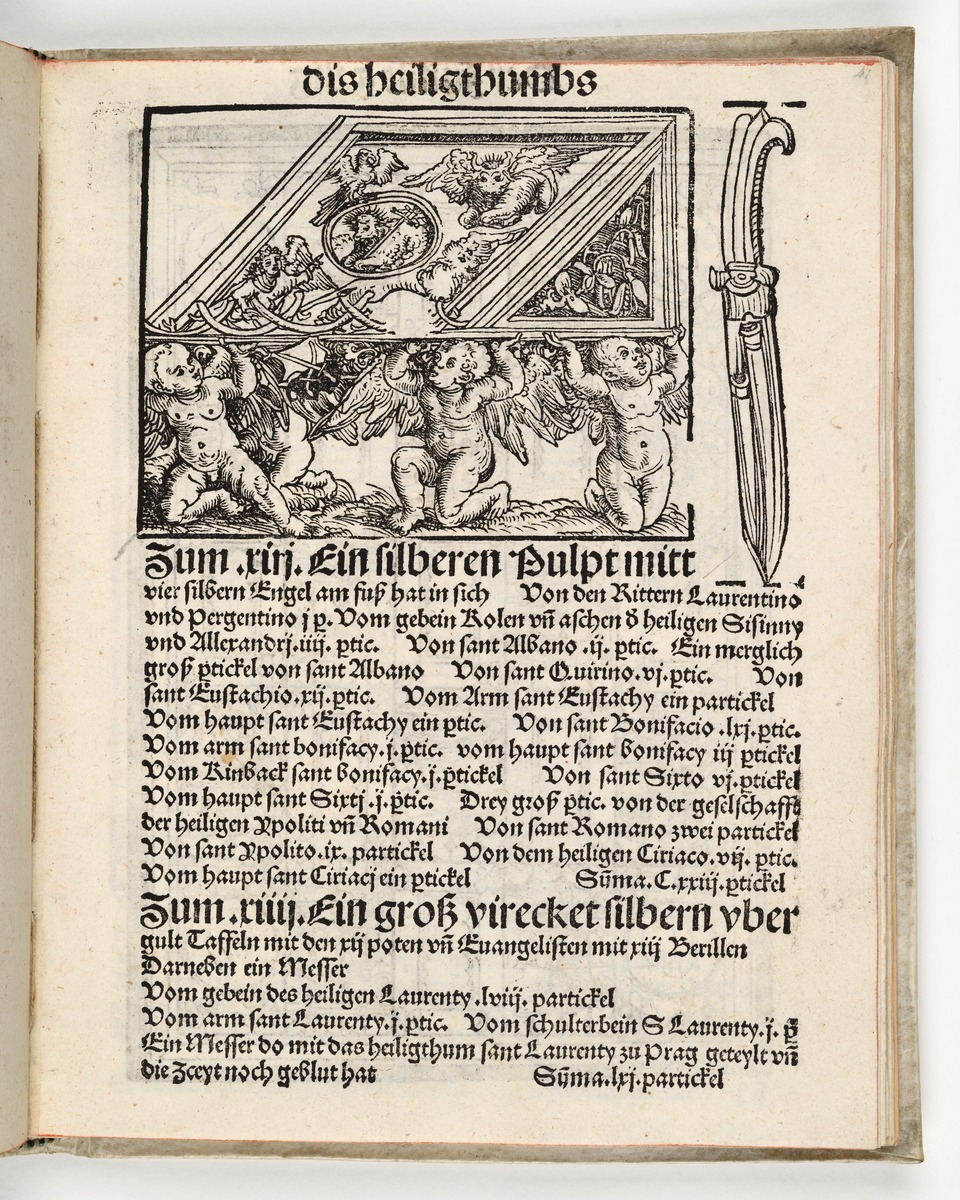 dis heiligthumbs
Zum .xiij. Ein silberen Pulpt mitt
vier silbern Engel am fuß hat in sich Von den Rittern Laurentino
vnd Pergentino j p. Vom gebein Kolen vñ aschen d̕ heiligen Sisinny
vnd Allexandrj.iiij. ptic. Von sant Albano .ij. ptic. Ein merglich
groß ptickel von sant Albano Von sant Quirino.vj.ptic. Von
sant Eustachio.xij.ptic. Vom Arm sant Eustachy ein partickel
Vom haupt sant Eustachy ein ptic. Von sant Bonifacio .lxj.ptic.
Vom arm sant bonifacy.j.ptic. vom haupt sant bonifacy iij ptickel
Vom Kinback sant bonifacy.j.ptickel Von sant Sixto vj.ptickel
Vom haupt sant Sixtj .j.ptic. Drey groß ptic. von der geselschafft
der heiligen Ypoliti vñ Romani Von sant Romano zwei partickel
Von sant Ypolito.ix. partickel Von dem heiligen Ciriaco.vij. ptic.
Vom haupt sant Ciriacj ein ptickel Sūma.C.xxiij.ptickel
Zum .xiiij. Ein groß virecket silbern vber
gult Taffeln mit den xij poten vñ Euangelisten mit xiij Berillen
Darneben ein Messer
Vom gebein des heiligen Laurenty .lviij. partickel
Vom arm sant Laurenty.j.ptic. Vom schulterbein S Laurenty.j. p̄
Ein Messer do mit das heiligthum sant Laurenty zu Prag geteylt vñ
die Zceyt noch geblut hat Sūma.lxj.partickel